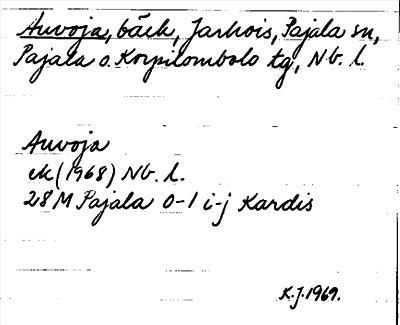 Auvoja, bäck, Jarhois, Pajala sn,
Pajala o. Korpilombolo tg, Nb. l.
Auvoja
ek (1968) Nb. l.
28M Pajala 0-1 i-j Kardis
K.J. 1969.